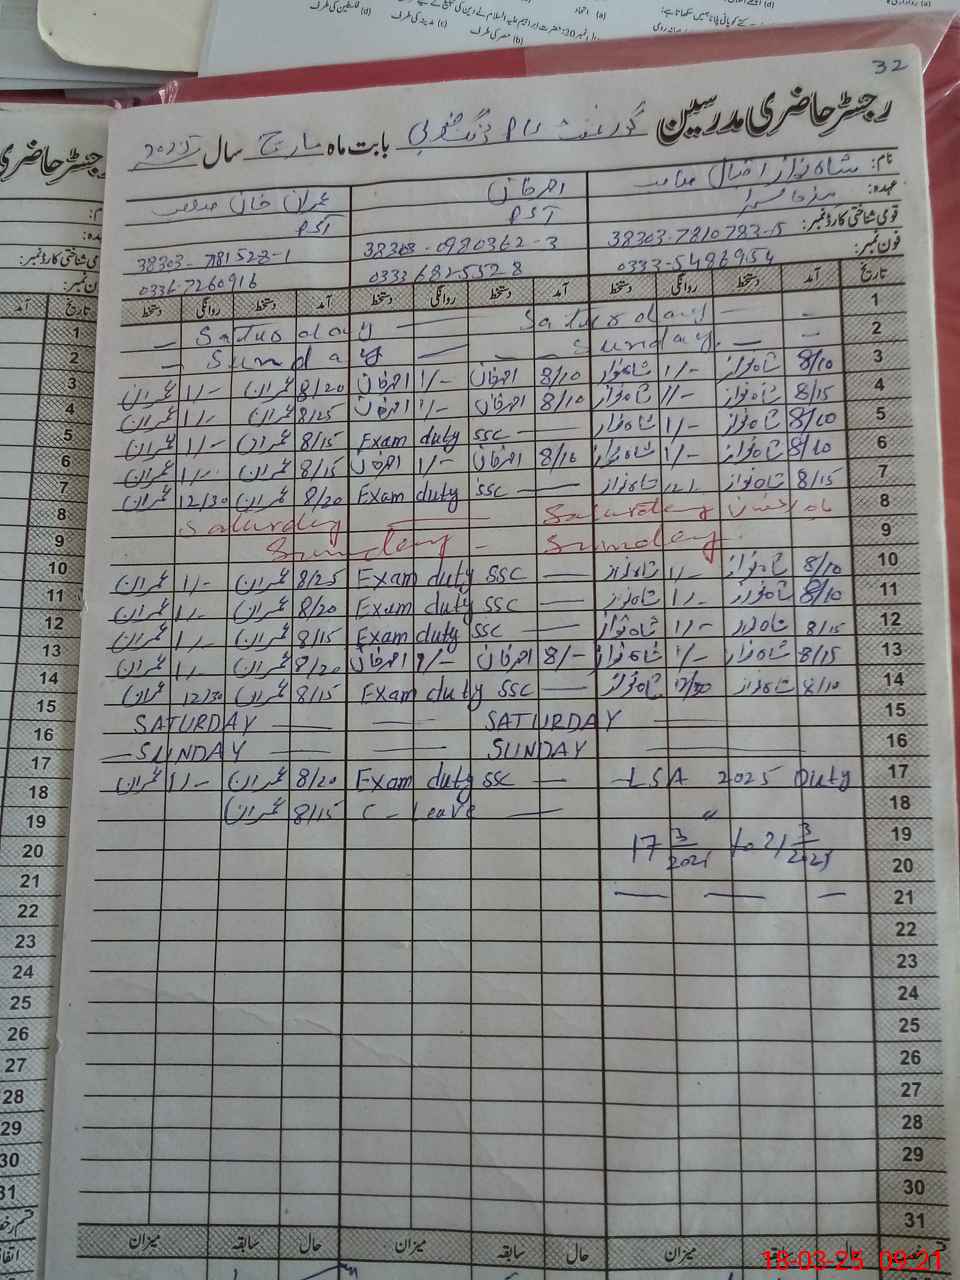 32
رجسٹر حاضری مدرسین گورنمنٹ P/S بابت ماہ مارچ سال 2025
نام: شاہ نواز اقبال صاحب احمرخان عمران خان صاحب
عہدہ: PST PST
قومی شناختی کارڈ نمبر: 38303-7810783-5 38303-0980362-3 38303-7181528-1
فون نمبر: 0333-5486954 0333 6825528 0336-7260916
تاریخ آمد دستخط روانگی دستخط آمد دستخط روانگی دستخط آمد دستخط روانگی دستخط
1 Saturday — Saturday —
2 Sunday — Sunday —
3 8/10 شاہ نواز 1/- شاہ نواز 8/10 احمرخان 1/- احمرخان 8/20 عمران 1/- عمران
4 8/15 شاہ نواز 1/- شاہ نواز 8/10 احمرخان 1/- احمرخان 8/25 عمران 1/- عمران
5 8/10 شاہ نواز 1/- شاہ نواز Exam duty SSC — 8/15 عمران 1/- عمران
6 8/10 شاہ نواز 1/- شاہ نواز 8/10 احمرخان 1/- احمرخان 8/15 عمران 1/- عمران
7 8/15 شاہ نواز 12/ شاہ نواز Exam duty SSC — 8/20 عمران 12/30 عمران
8 Saturday Saturday
9 Sunday Sunday
10 8/10 شاہ نواز 1/- شاہ نواز Exam duty SSC — 8/25 عمران 1/- عمران
11 8/10 شاہ نواز 1/- شاہ نواز Exam duty SSC — 8/20 عمران 1/- عمران
12 8/15 شاہ نواز 1/- شاہ نواز Exam duty SSC — 8/15 عمران 1/- عمران
13 8/15 شاہ نواز 1/- شاہ نواز 8/- احمرخان 1/- احمرخان 8/20 عمران 1/- عمران
14 8/10 شاہ نواز 12/30 شاہ نواز Exam duty SSC — 8/15 عمران 12/30 عمران
15 SATURDAY — SATURDAY —
16 SUNDAY — SUNDAY —
17 LSA 2025 Duty Exam duty SSC — 8/20 عمران 1/- عمران
18 〃 C - Leave — 8/15 عمران
19 17 3/2025 to 21 3/2025
20
21
22
23
24
25
26
27
28
29
30
31
حال سابقہ میزان حال سابقہ میزان حال سابقہ میزان
18-03-25 09:21